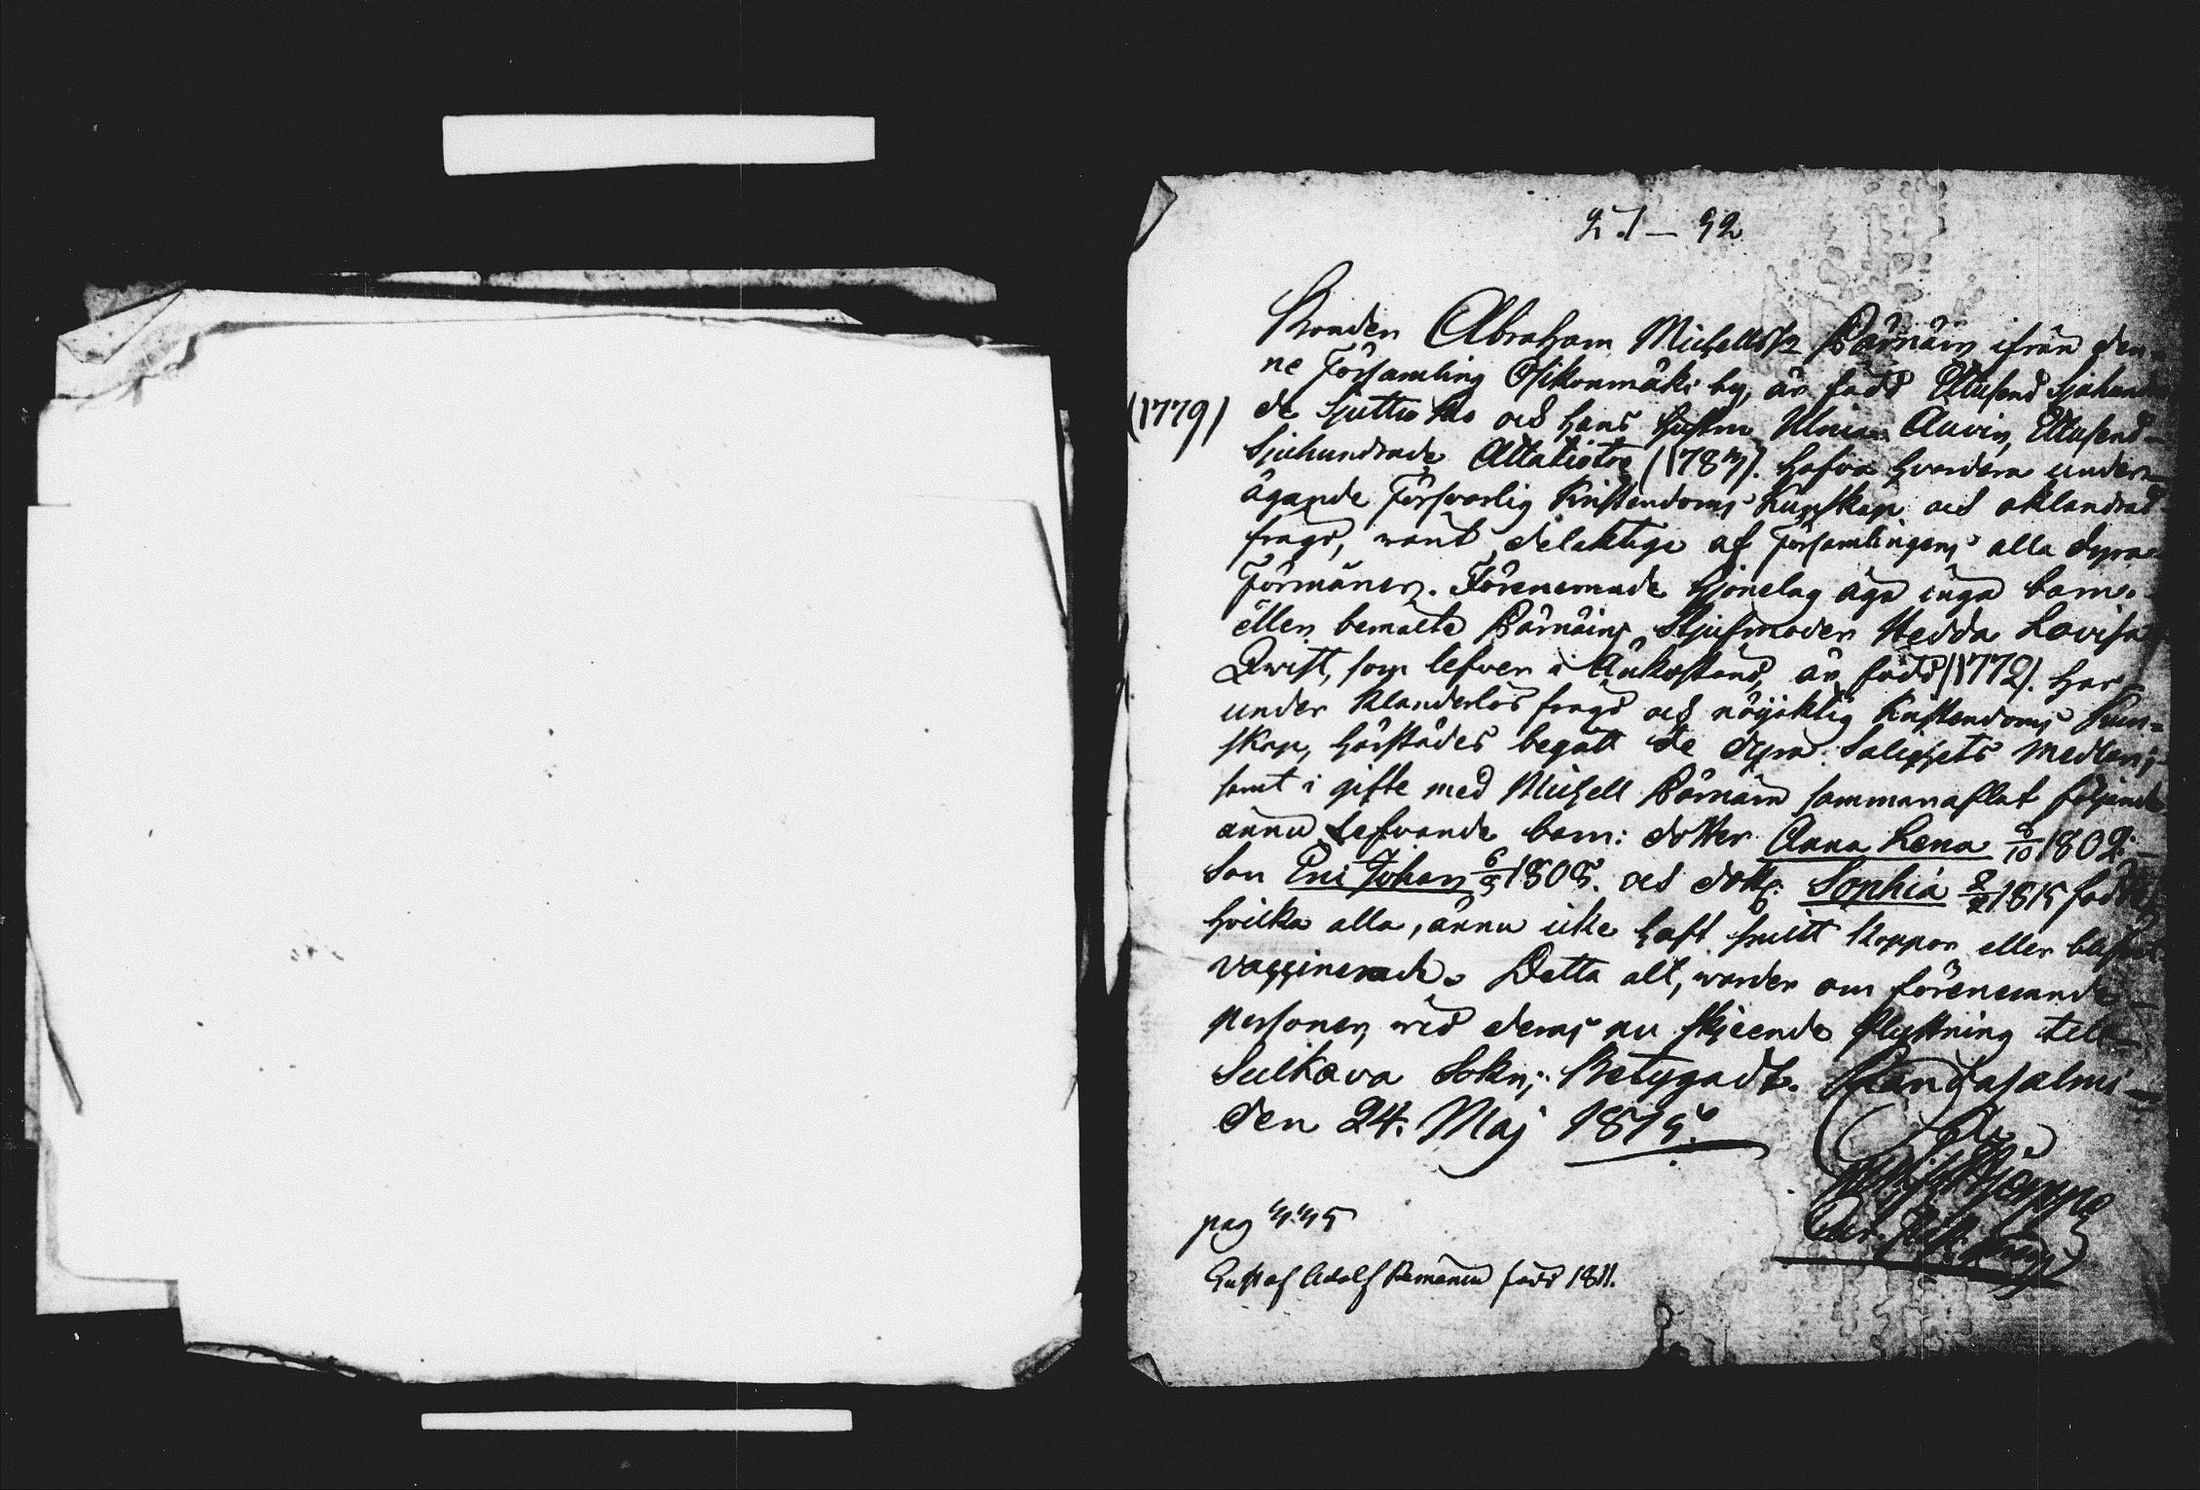 27 — 32
Bonden Abraham Michellss: Pärnäin ifrån den-
ne Församling Osikonmäki by, är född Ettusend Sjuhundra
(1779) de Sjuttio Nio och hans hustru Ulrica Auvin, Ettusend-
Sjuhundrade Attatiotre (1783). hafva hvardera under
ägande Försvarlig Kristendoms Kunskap och oklandrad
fragd, warit delaktige af Församlingens alla dyra
Förmåner. Förenemnde Hjonelag äga inga barn.
ällen bemälte Pärnäins Stjufmoder Hedda Lovisa
Qwist, som lefver i Änkostånd, är född (1772). har
under klanderlös fragd och nöjaktig Kristendoms Kun-
skap, härstädes begått de dyra Salighets Medlen;
samt i gifte med Michell Pärnäin sammanaflat följande
ännu lefvande barn: dotter Anna Lena /10 1802.
Son Eric Johan 1808. och dottr: Sophia 1815 född
hvilka alla, ännu icke haft Koppor eller blifvit
vaccinerade. Detta alt, warder om förenemnde
personer, vid deras nu skjeende flyttning till
Sulkava Sokn; Betygadt. Randasalmi
den 24. Maj 1815.
pag 445
Gustaf Adolf född 1811.